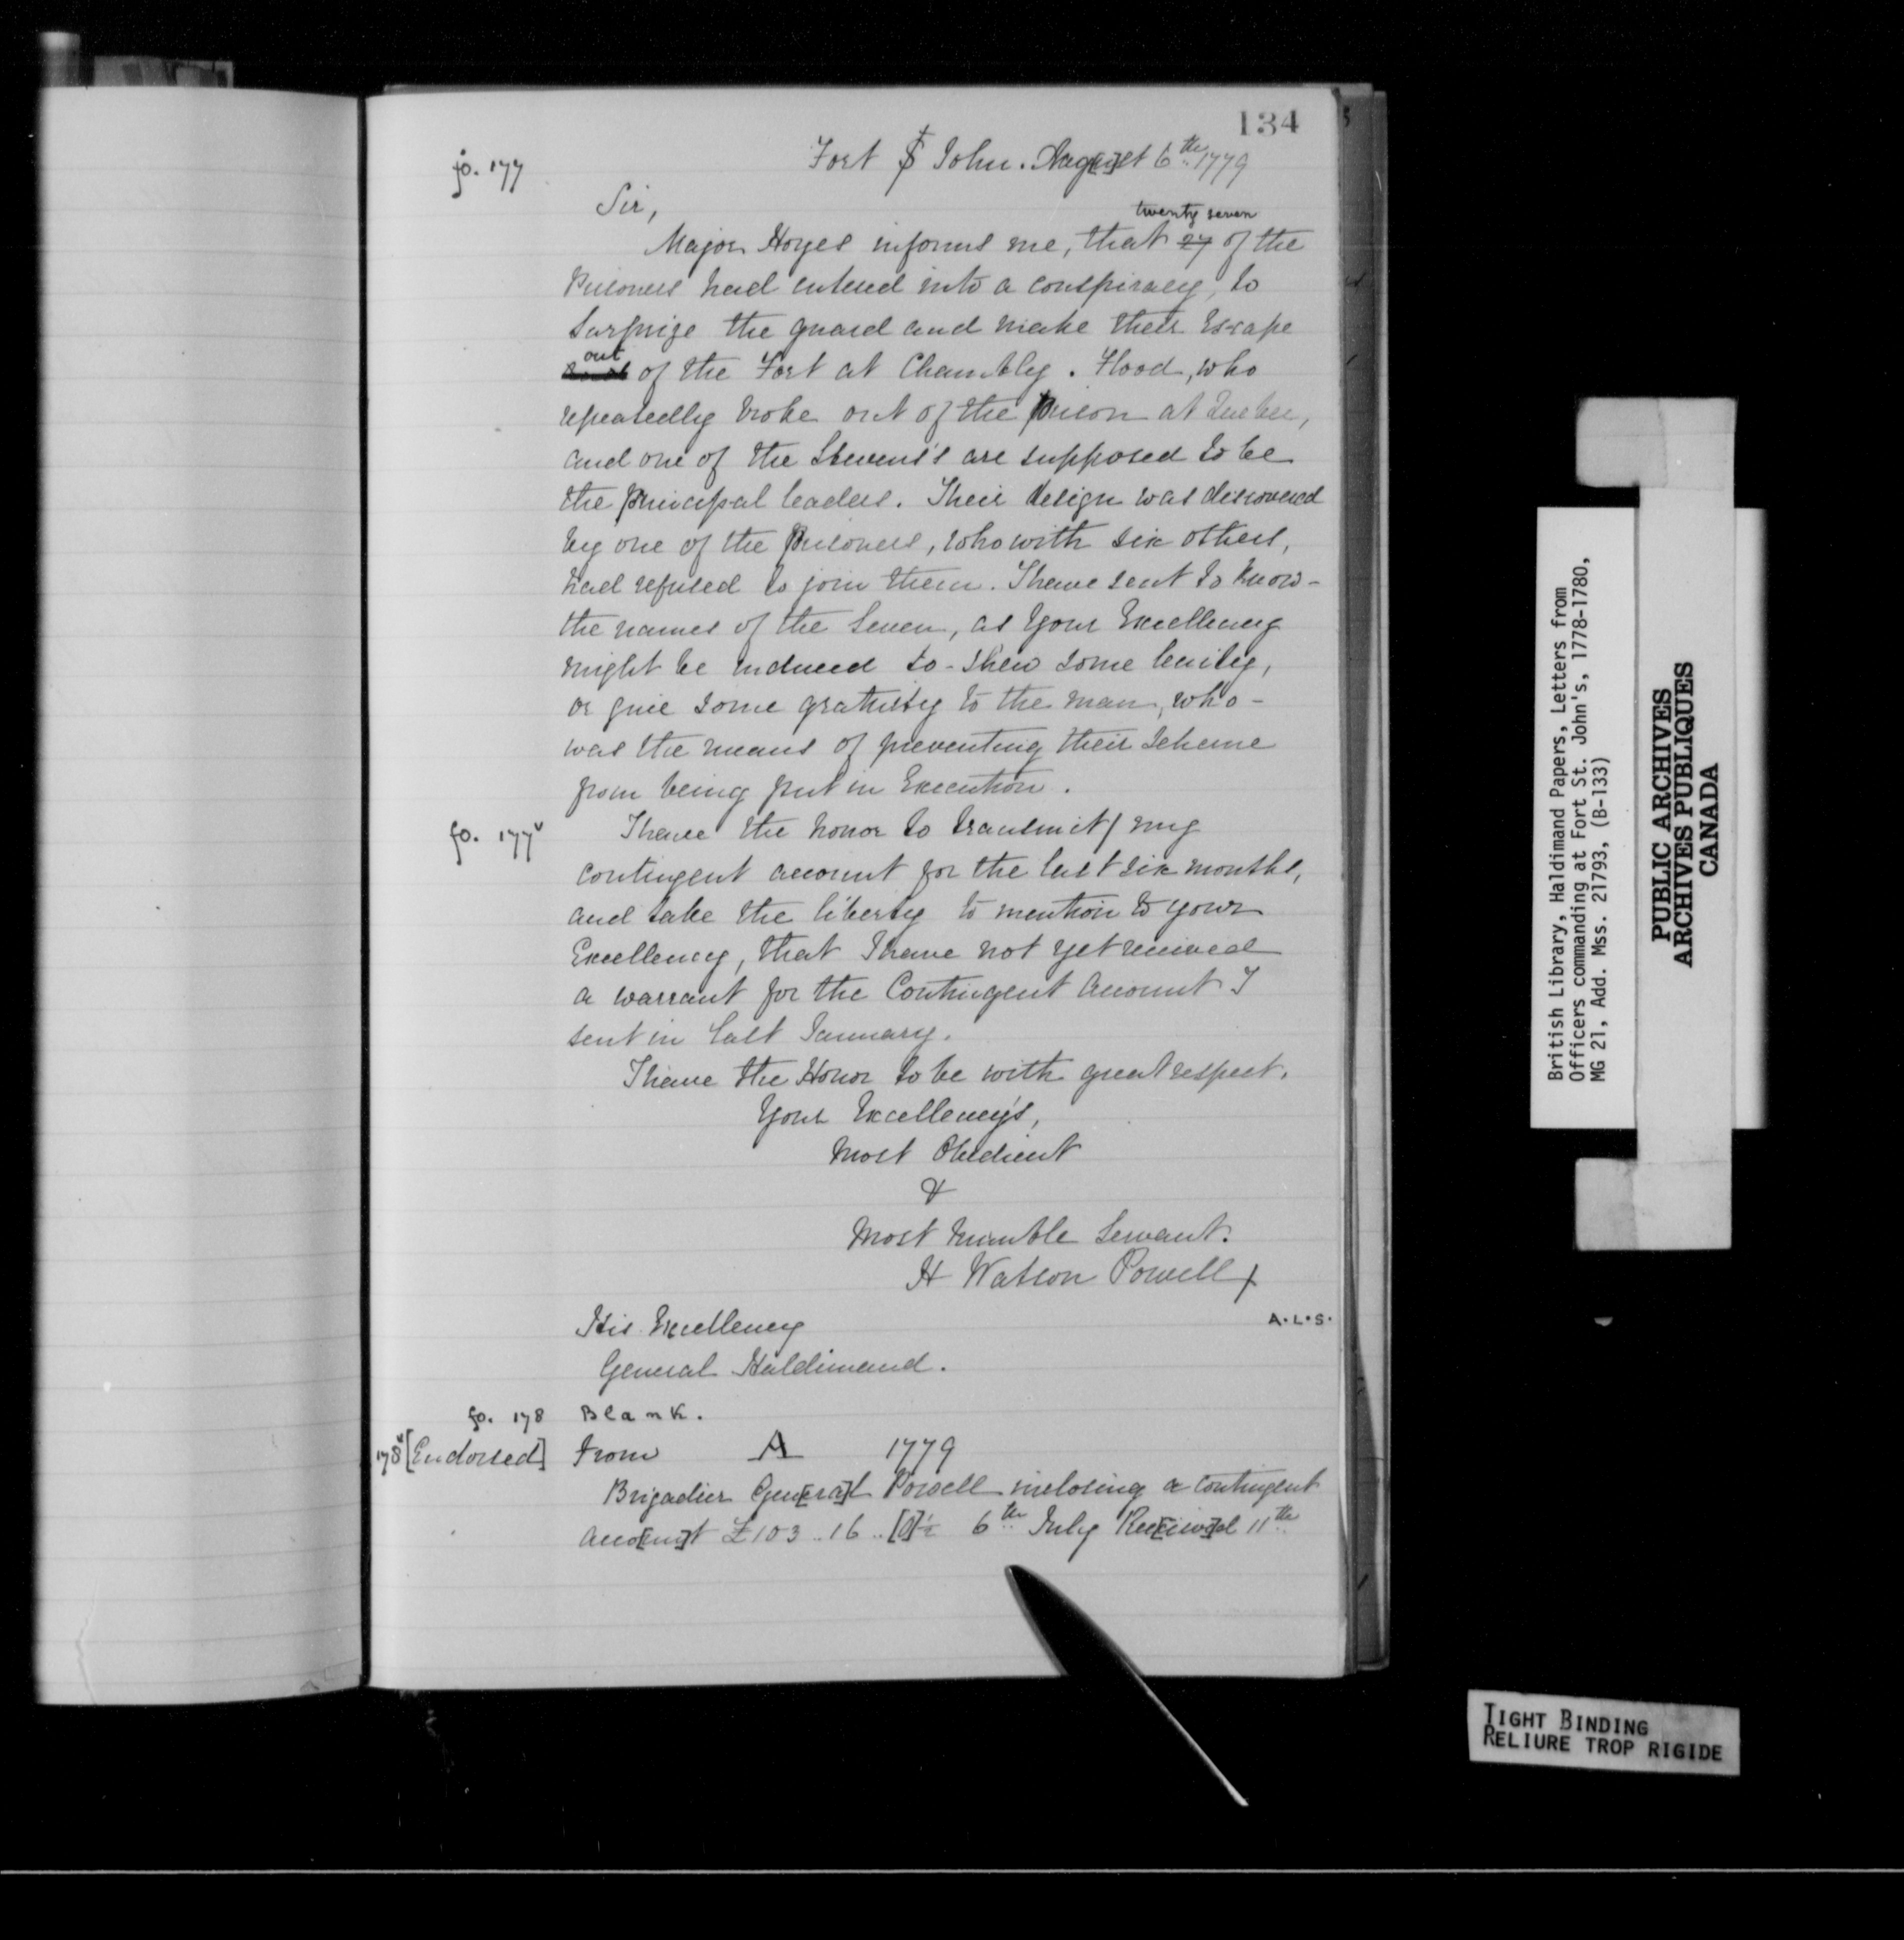 134
fo. 177
Fort St John. Aug[u]st 6th 1779
Sir,
twenty seven
Major Hoyes informs me, that 27 of the
Prisoners had entered into a conspiracy, to
surprize the guard and make their Escape
out
of the Fort at Chambly. Flood, who
repeatedly broke out of the Prison at Quebec,
and one of the Stevens's are supposed to be
the principal leaders. Their design was discovered
by one of the Prisoners, who with six others,
had refused to join them. I have sent to know-
the names of the Seven, as Your Excellency
might be induced to-shew some lenity,
or give some gratuity to the man, who-
was the means of preventing their Scheme
from being put in Execution.
fo. 177v
I have the honor to transmit/ my
contingent account for the last six months,
and take the liberty to mention to your
Excellency, that I have not yet received
a warrant for the Contingent Account I
sent in last January.
I have the Honor to be with great respect.
Your Excellency's,
Most Obedient
&
Most humble Servant.
H Watson Powell/
A.L.S.
His Excellency
General Haldimand.
fo. 178 Blank.
178v [Endorsed] From A 1779
Brigadier Gen[era]l Powell inclosing a contingent
Acco[un]t £103..16..[0]½ 6th July Rec[eive]d 11th
British Library, Haldimand Papers, Letters from
Officers commanding at Fort St. John's, 1778-1780,
MG 21, Add. Mss. 21793, (B-133)
PUBLIC ARCHIVES
ARCHIVES PUBLIQUES
CANADA
TIGHT BINDING
RELIURE TROP RIGIDE